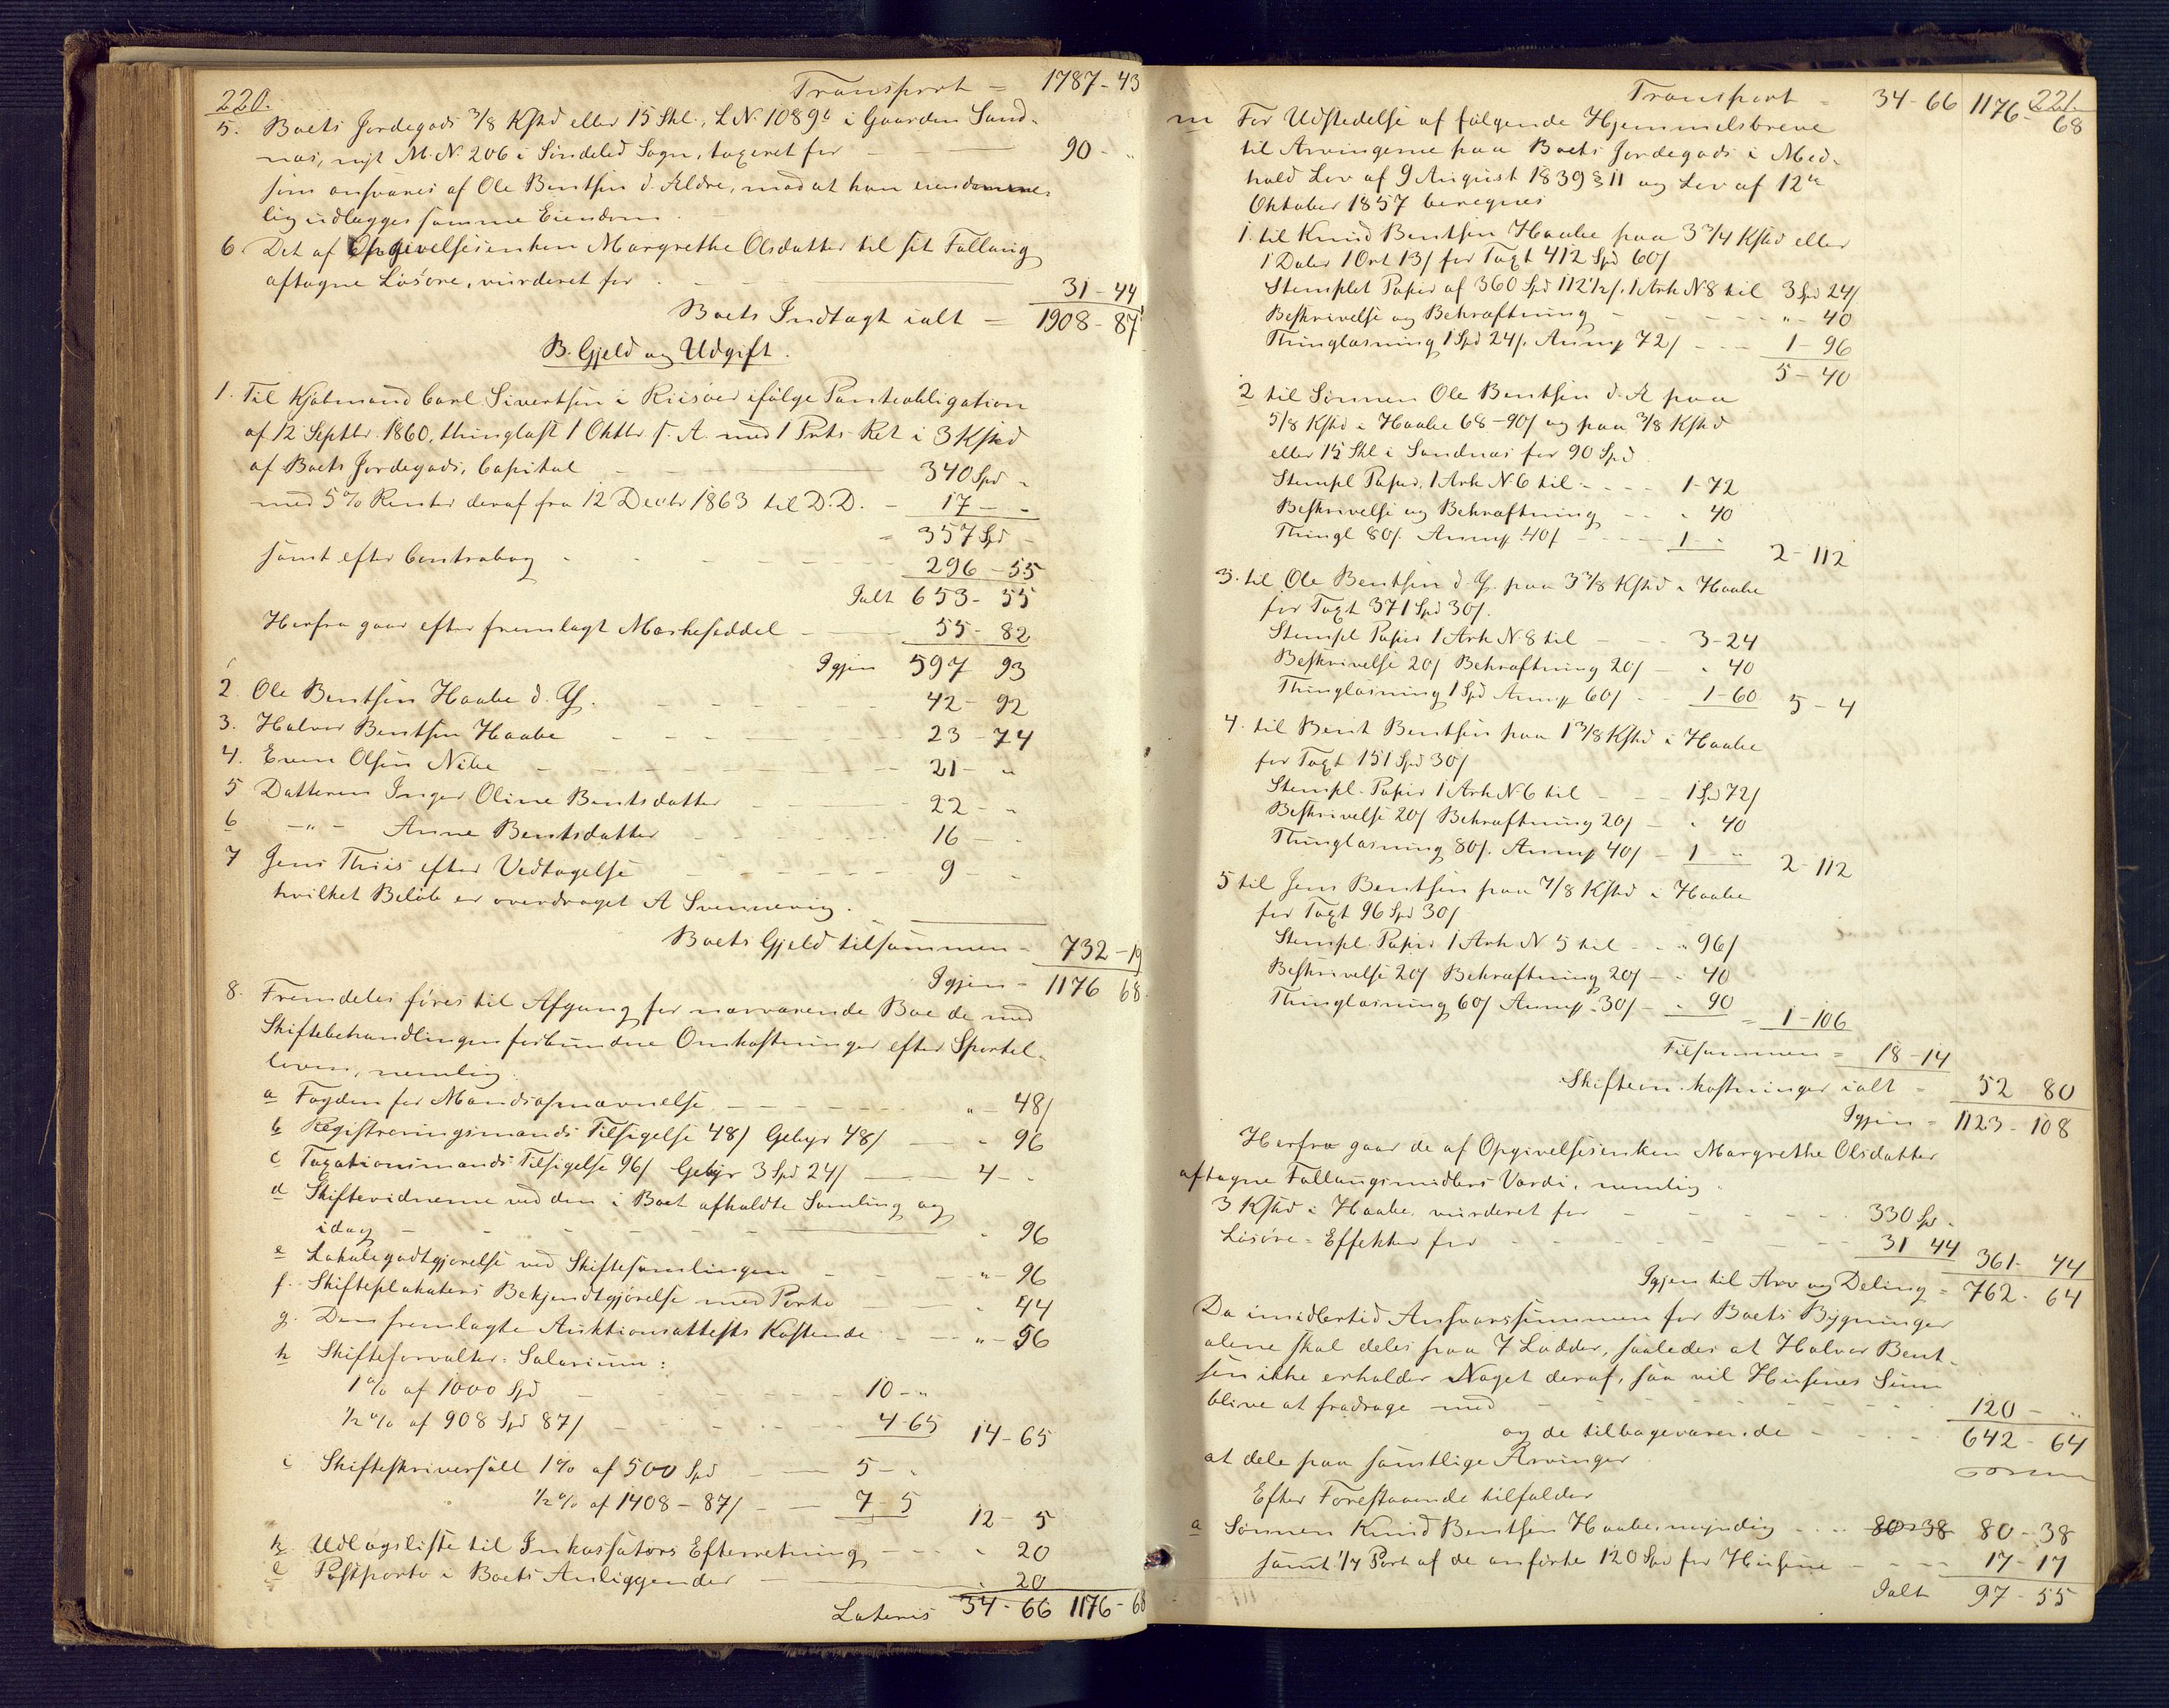 220.
Transport = 1787-43
5. Boets Jordegods 3/8 Kfhd eller 15 Skl., L.N. 1089b i Gaarden Sand-
næs, nyt M.N. 206 i Söndeled Sogn, taxeret for 90 - "
som ansvares af Ole Bentsen d. Ældre, mod at han eiendomme-
lig udlægges samme Eiendom.
6. Det af Opgivelsesenken Margrethe Olsdatter til sit Fallaug
aftagne Lösöre, vurderet for 31-44
Boets Indtægt ialt = 1908-87
B. Gjeld og Udgift.
1. Til Kjöbmand Carl Sivertsen i Riisöer ifölge Panteobligation
af 12 Septbr. 1860, thinglæst 1 Oktbr. s. A. med 1 Prts. Ret i 3 Kfhd
af Boets Jordegods, Capital 340 Spd -
med 5% Renter deraf fra 12 Decbr 1863 til D.D. - 17 - -
= 357 Spd -
samt efter Contrabog 296-55
Ialt 653-55
Herfra gaar efter fremlagt Mærkeseddel 55-82
Igjen 597 93
2. Ole Bentsen Haabe d. Y. 42-92
3. Halvor Bentsen Haabe 23-74
4. Even Olsen Nibe 21- "
5 Datteren Inger Oline Bentsdatter 22 - "
6 -"- Anne Bentsdatter 16 - -
7 Jens Thiis efter Vedtagelse 9 - -
hvilket Belöb er overdraget A Svennevig.
Boets Gjeld tilsammen - 732-19
Igjen - 1176 68
8. Fremdeles föres til Afgang for nærværende Boe de med
Skiftebehandlingen forbundne Omkostninger efter Sportel-
loven, nemlig:
a Fogden for Mandsopnævnelse " - 48/
b Registreringsmænds Tilsigelse 48/ Gebyr 48/ - 96
c Taxationsmænds Tilsigelse 96/ Gebyr 3 Spd 24/ 4 - -
d Skiftevidnerne ved den i Boet afholdte Samling og
idag - 96
e Lokalegodtgjörelse ved Skiftesamlingen " - 96
f. Skifteplakatens Bekjendtgjörelse med Porto - 44
g. Den fremlagte Auktionsattests Kostende " - 56
h Skifteforvalter-Salarium:
1% af 1000 Spd 10 - "
1/2% af 908 Spd 87/ 4-65 14-65
i Skifteskriversalt 1% af 500 Spd 5 - -
1/2% af 1408-87/ 7-5 12-5
k Udlægsliste til Inkassators Efterretning - 20
l Postporto i Boets Anliggender - 20
Lateris 34-66 1176-68
221.
Transport - 34-66 1176-68
m For Udstedelse af fölgende Hjemmelsbreve
til Arvingerne paa Boets Jordegods i Med-
hold Lov af 9 August 1839 § 11 og Lov af 12te
Oktober 1857 beregnes
1. til Knud Bentsen Haabe paa 3 3/4 Kfhd eller
1 Daler 1 Ort 13/ for Taxt 412 Spd 60/
Stemplet Papir af 360 Spd 112 1/2/. 1 Ark N 8 til 3 Spd 24/
Beskrivelse og Bekræftning " - 40
Thinglæsning 1 Spd 24/. Anmp 72/ 1-96
5-40
2 til Sönnen Ole Bentsen d. Æ paa
5/8 Kfhd i Haabe 68-90/ og paa 3/8 Kfhd
eller 15 Skl i Sandnæs for 90 Spd
Stempl Papir, 1 Ark N 6 til 1-72
Beskrivelse og Bekræftning - 40
Thingl 80/. Anmp 40/ 1 - 2-112
3. til Ole Bentsen d. Y. paa 3 3/8 Kfhd i Haabe
for Taxt 371 Spd 30/.
Stempl Papir 1 Ark N 8 til 3-24
Beskrivelse 20/ Bekræftning 20/ - 40
Thinglæsning 1 Spd Anmp 60/ 1-60 5-4
4. til Bent Bentsen paa 1 3/8 Kfhd i Haabe
for Taxt 151 Spd 30/
Stempl. Papir 1 Ark N 6 til 1 Spd 72/
Beskrivelse 20/ Bekræftning 20/ - 40
Thinglæsning 80/. Anmp 40/ - 1 - " 2-112
5 til Jens Bentsen paa 7/8 Kfhd i Haabe
for Taxt 96 Spd 30/
Stempl. Papir 1 Ark N 5 til - " 96/
Beskrivelse 20/ Bekræftning 20/ - 40
Thinglæsning 60/ Anmp. 30/ - 90 = 1-106
Tilsammen = 18-14
Skifteomkostninger ialt - 52 80
Igjen = 1123-108
Herfra gaar de af Opgivelsesenken Margrethe Olsdatter
aftagne Fallaugsmidlers Værdi, nemlig
3 Kfhd i Haabe, vurderet for 330 Spd -
Lösöre-Effekter for 31 44 361-44
Igjen til Arv og Deling = 762-64
Da imidlertid Ansvarssummen for Boets Bygninger
alene skal deles paa 7 Lodder, saaledes at Halvor Bent-
sen ikke erholder Noget deraf, saa vil Husenes Sum
blive at fradrage med 120 - "
og de tilbageværende 642-64
at dele paa samtlige Arvinger
Efter Forestaaende tilfalder
a Sönnen Knud Bentsen Haabe, myndig 80-38 80-38
samt 1/7 Part af de anförte 120 Spd for Husene 17-17
Ialt 97-55